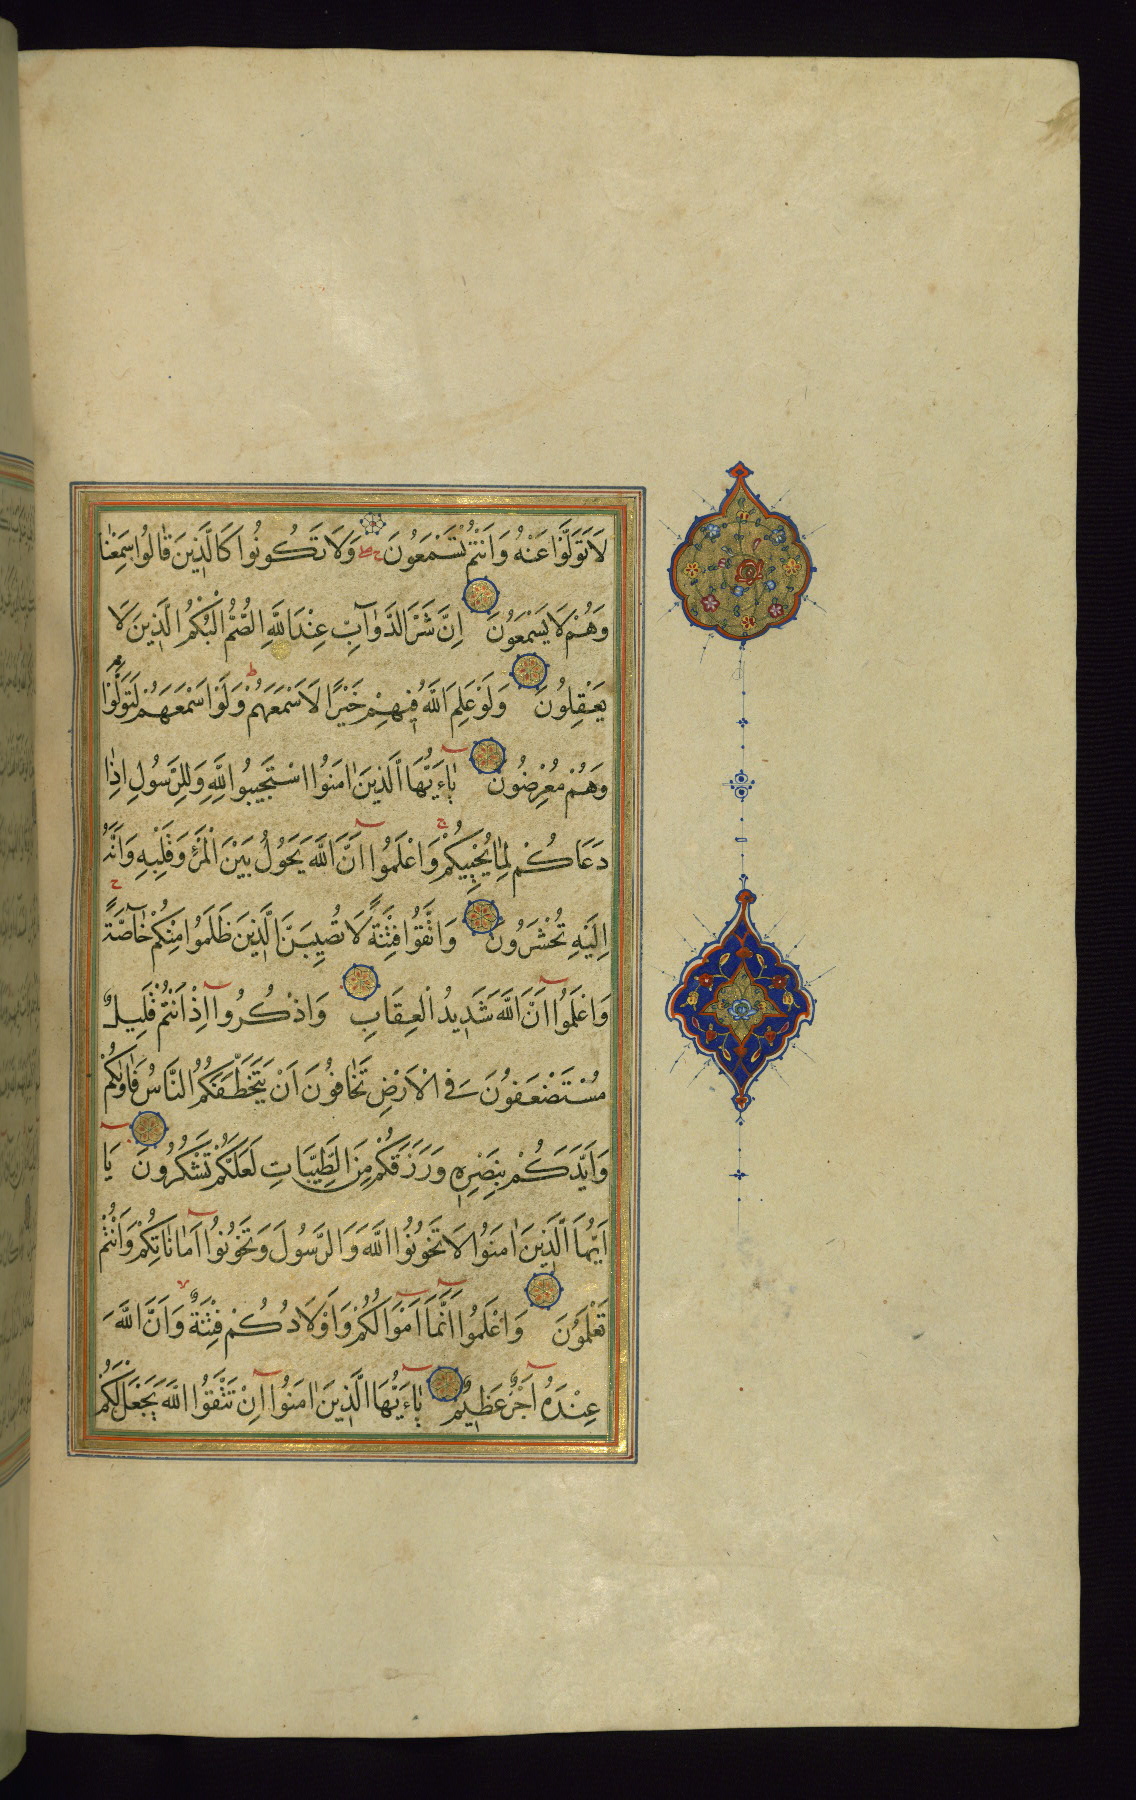 لَا تَوَلَّوْا عَنْهُ وَاَنْتُمْ تَسْمَعُونَ وَلَا تَكُونُوا كَالَّذِينَ قَالُوا سَمِعْنَا
وَهُمْ لَا يَسْمَعُونَ اِنَّ شَرَّ الدَّوَآبِّ عِنْدَ اللَّهِ الصُّمُّ الْبُكْمُ الَّذِينَ لَا
يَعْقِلُونَ وَلَوْ عَلِمَ اللَّهُ فِيهِمْ خَيْرًا لَاَسْمَعَهُمْ وَلَوْ اَسْمَعَهُمْ لَتَوَلَّوْا
وَهُمْ مُعْرِضُونَ يَٓاءَيُّهَا الَّذِينَ اٰمَنُوا اسْتَجِيبُوا لِلَّهِ وَلِلرَّسُولِ اِذَا
دَعَاكُمْ لِمَا يُحْيِيكُمْ وَاعْلَمُٓوا اَنَّ اللَّهَ يَحُولُ بَيْنَ الْمَرْءِ وَقَلْبِهِ وَاَنَّهُ
اِلَيْهِ تُحْشَرُونَ وَاتَّقُوا فِتْنَةً لَا تُصِيبَنَّ الَّذِينَ ظَلَمُوا مِنْكُمْ خَآصَّةً
وَاعْلَمُٓوا اَنَّ اللَّهَ شَدِيدُ الْعِقَابِ وَاذْكُرُٓوا اِذْ اَنْتُمْ قَلِيلٌ
مُسْتَضْعَفُونَ فِي الْاَرْضِ تَخَافُونَ اَنْ يَتَخَطَّفَكُمُ النَّاسُ فَاٰوٰيكُمْ
وَاَيَّدَكُمْ بِنَصْرِهِ وَرَزَقَكُمْ مِنَ الطَّيِّبَاتِ لَعَلَّكُمْ تَشْكُرُونَ يَٓا
اَيُّهَا الَّذِينَ اٰمَنُوا لَا تَخُونُوا اللَّهَ وَالرَّسُولَ وَتَخُونُٓوا اَمَانَاتِكُمْ وَاَنْتُمْ
تَعْلَمُونَ وَاعْلَمُٓوا اَنَّمَٓا اَمْوَالُكُمْ وَاَوْلَادُكُمْ فِتْنَةٌ وَاَنَّ اللَّهَ
عِنْدَهُٓ اَجْرٌ عَظِيمٌ يَٓاءَيُّهَا الَّذِينَ اٰمَنُٓوا اِنْ تَتَّقُوا اللَّهَ يَجْعَلْ لَكُمْ